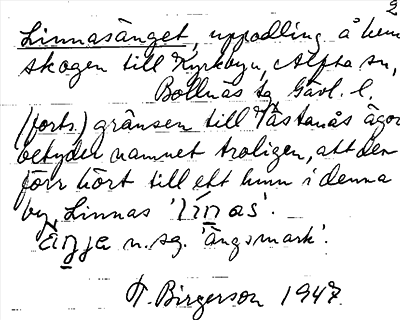 2
Linnasänget, uppodling å hem
skogen till Kyrkbyn, Alfta sn,
Bollnäs tg Gävl. l.
(forts.) gränsen till Västanås ägor
betyder namnet troligen, att den
förr hört till ett hem i denna
by, Linnas 'li̱nas'.
äṉje n. sg. 'ängsmark'.
T. Birgerson 1947.